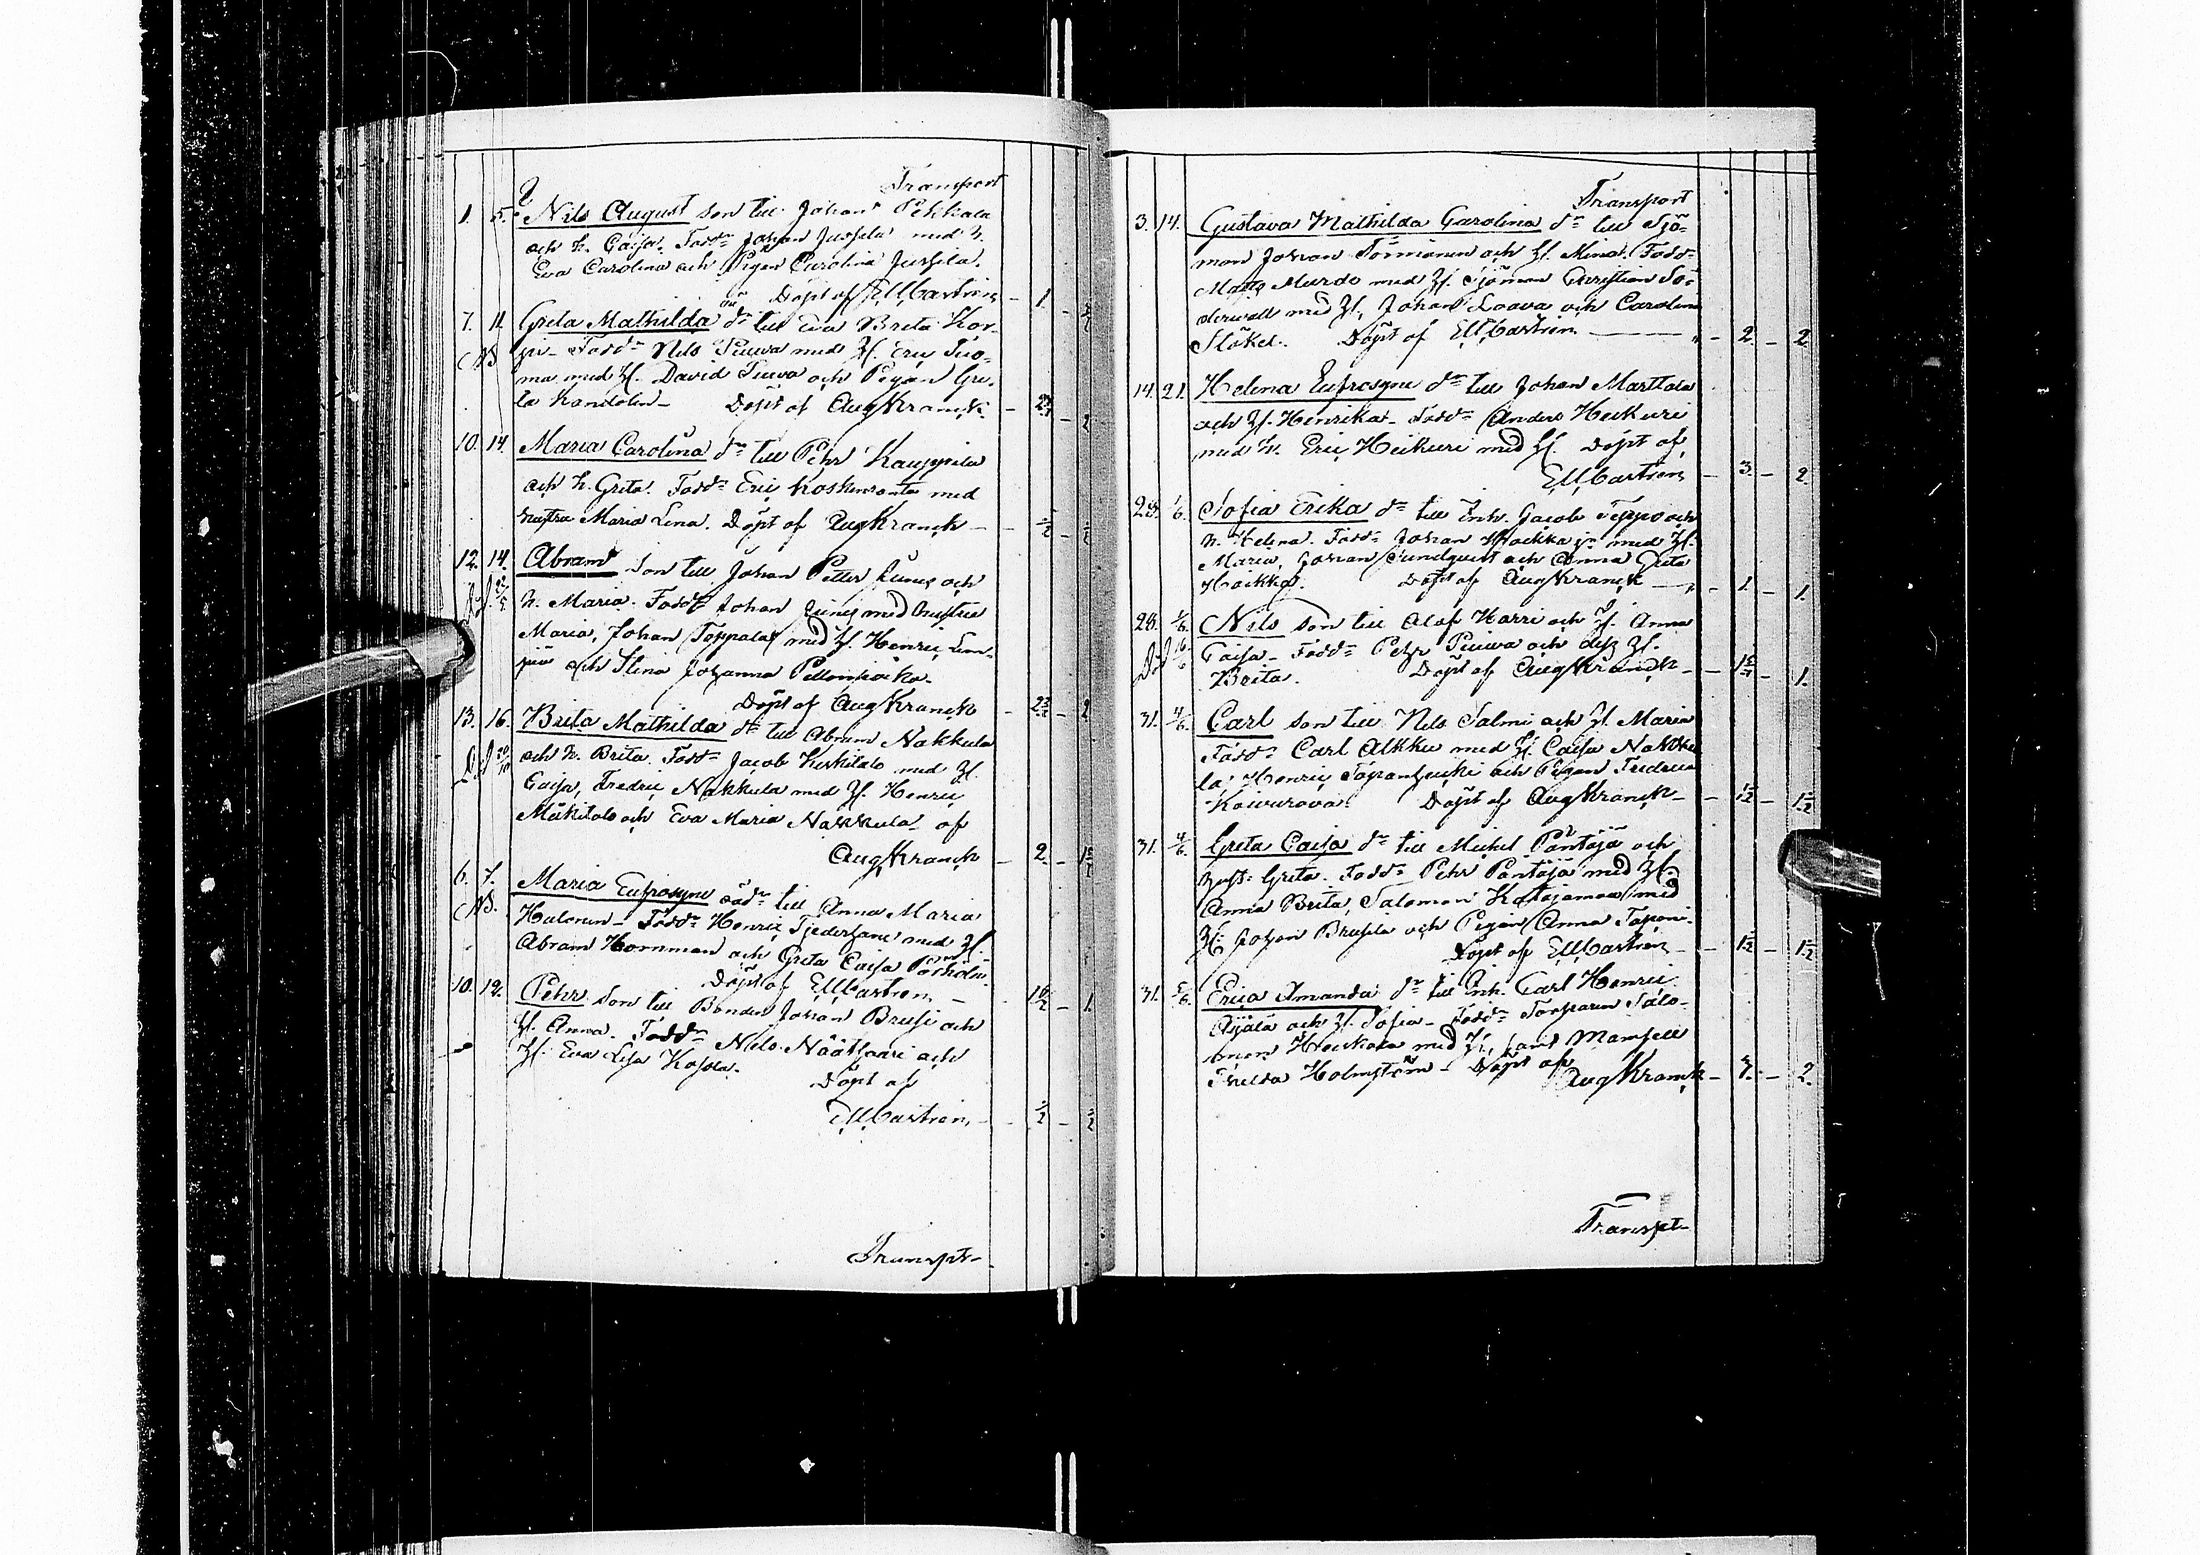 Transport
1. 5. Nils August son till Johan Pekkala
och h. Caisa. Fadd. Johan Jussila med h.
Eva Carolina och Pigan Carolina Jussila.
Döpt af E.M. Castrén – 1. –
7. 11. Greta Mathilda oä dr till Eva Brita Kor-
pi – Fadd. Nils Puuva med H. Eric Tuo-
ma med H. David Puuva och Pigan Gre-
ta Kandolin – Döpt af Aug Kranck –
10. 14. Maria Carolina dr till Pehr Kauppila
och h. Greta. Fadd. Eric Koskenranta med
hustru Maria Lena. Döpt af Aug Kranck –
12. 14. Abram son till Johan Petter Junes och
h. Maria. Fadd. Johan Junes med hustru
Maria, Johan Toppala med H. Henric
och Stina Johanna
Döpt af Aug Kranck
13. 16. Brita Mathilda dr till Abram Nakkula
och h. Brita. Fadd. Jacob Keskitalo med H.
Caisa, Fredric Nakkula med H. Henric
Mäkitalo och Eva Maria Nakkula af
Aug Kranck – 2. –
6. 7. Maria Eufrosyne oädr till Anna Maria
NB. Fadd. Henric med H.
Abram Hornman och Greta Caisa
Döpt af E.M. Castrén –
10. 12. Pehr son till Bonden Johan Brusi och
H. Anna. Fadd. Nils och
H. Eva Lisa
Döpt af
E.M. Castrén –
Transpt –
Transport
3. 14. Gustava Mathilda Carolina dr till Sjö-
man Johan Törmänen och H. Mina. Fadd.
Matts Murdo med H. Sjöman Christian Sö-
derwall med H. Johan Loava och Carolina
Stökel. Döpt af E.M. Castrén – 2. – 2.
14. 21. Helena Eufrosyne dr till Johan Marttala
och H. Henrika – Fadd. Anders Heikuri
med h. Eric Heikuri med H. Döpt af
E.M. Castrén – 3. – 2.
28. 1/6. Sofia Erika dr till Inh. Jacob Teppo och
h. Helena. Fadd. Johan Hoikka jr med H.
Maria, Johan Sundquist och Anna Greta
Hoikka. Döpt af Aug Kranck – 1. – 1.
28. 1/6. Nils son till Olof Harri och H. Anna
Caisa – Fadd. Pehr Puuva och dess H.
Brita. Döpt af Aug Kranck – 1.
31. 4/6. Carl son till Nils Salmi och H. Maria
Fadd. Carl Alkku med H. Caisa Nakku
la, Henric och Pigan Fredrica
Koivurova. Döpt af Aug Kranck –
31. 4/6. Greta Caisa dr till Michel Päntäjä och
hust. Greta. Fadd. Pehr Päntäjä med H.
Anna Brita, Salomon Katajamaa med
H. Johan Brusila och Pigan Anna
Döpt af E.M. Castrén –
31. 5/6. Erica Amanda dr till Inh. Carl Henric
Äijälä och H. Sofia – Fadd. Salo-
mon med H., samt Mamsell
Holmström – Döpt af
Aug Kranck – 3. – 2.
Transpt –